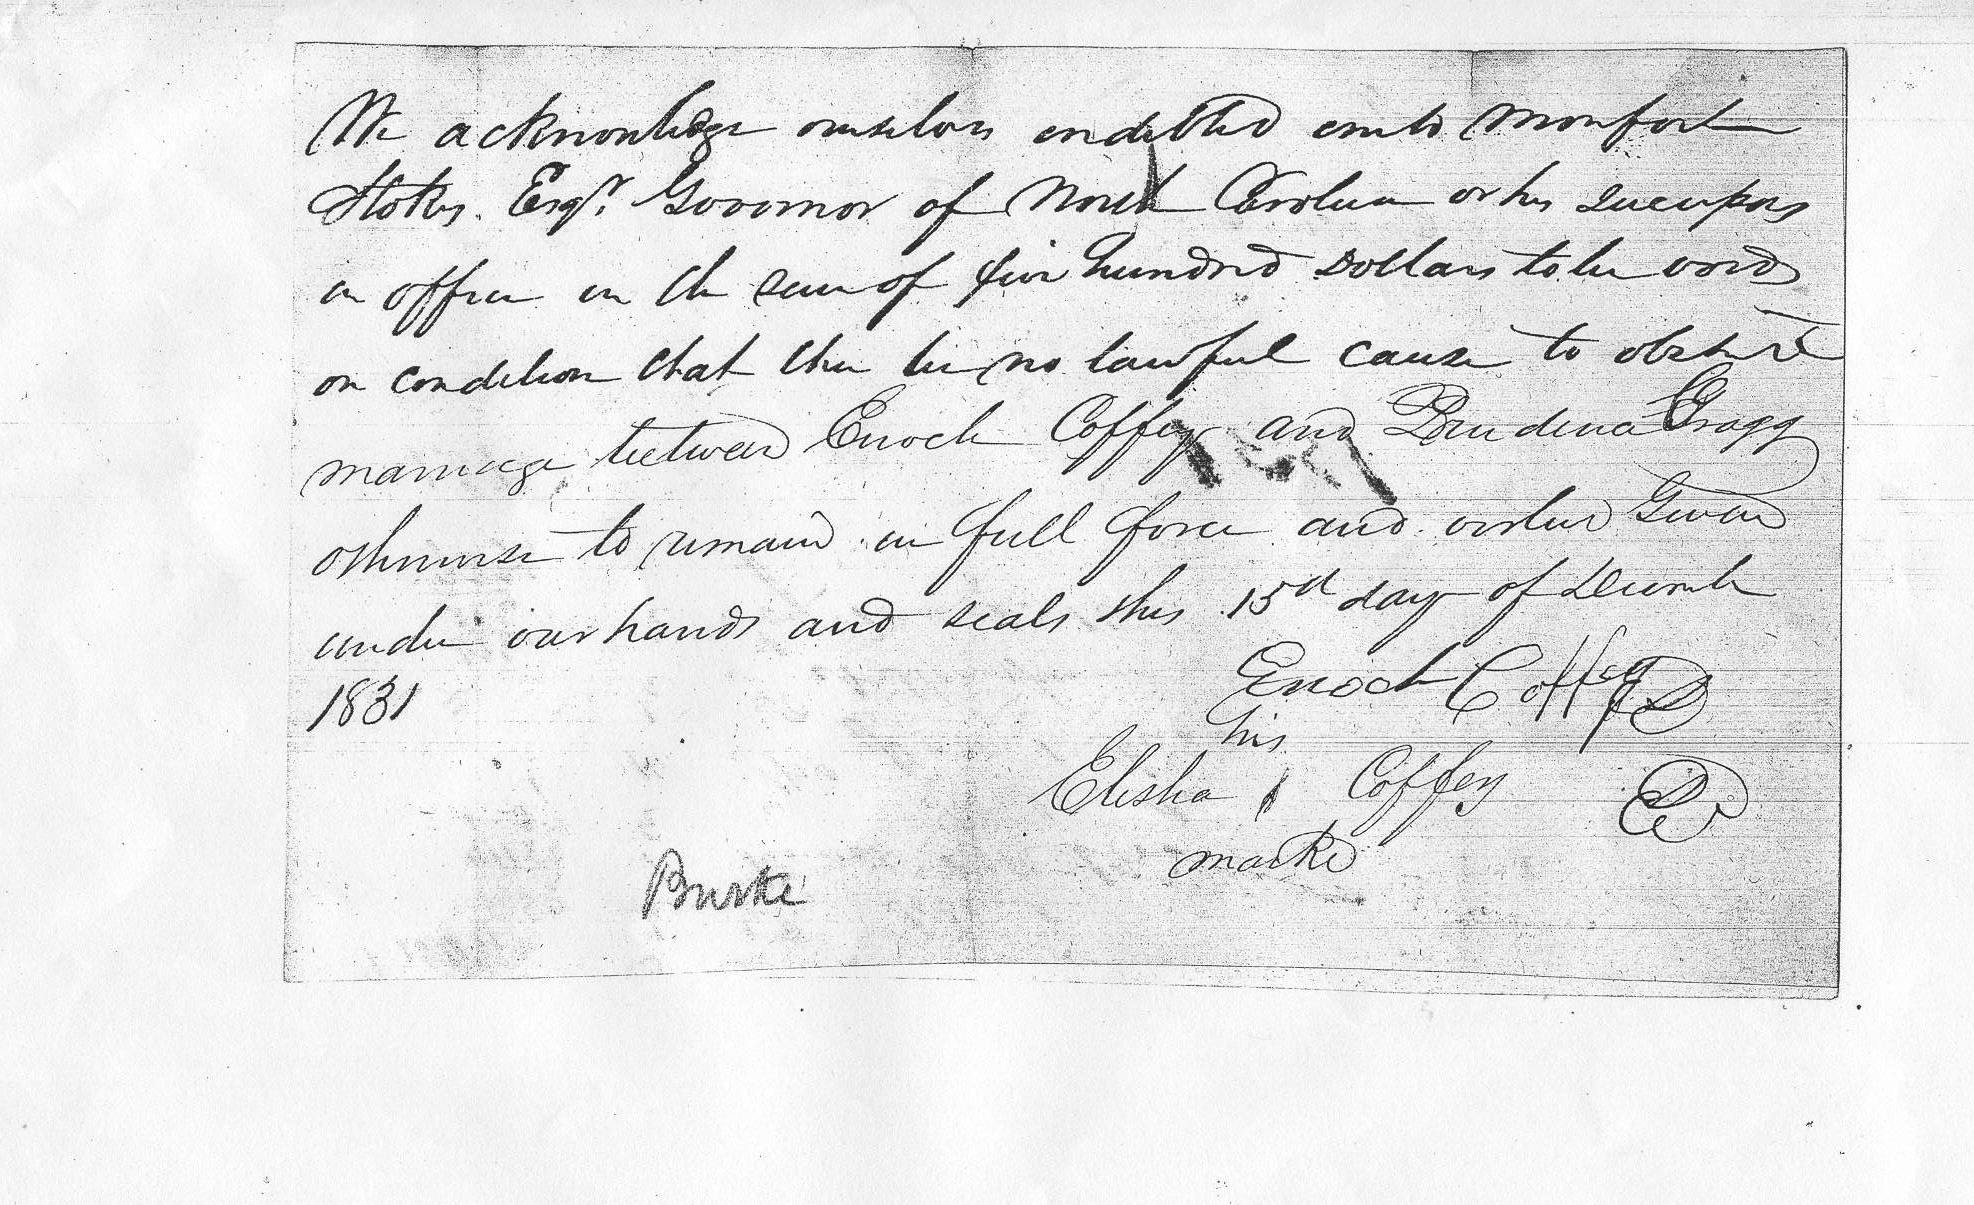 We acknowledge ourselves endebted unto Monfort
Stokes. Esqr. Governor of North Carolina or his Successors
in office in the sum of five hundred Dollars to be void
on condition that ther be no lawful cause to obstruct
marriage between Enoch Coffey and Prudena Gragg
otherwise to remain in full force and virtue Given
under our hands and seals this 15d day of Decemb
1831
Enoch Coffey
his
Elisha Coffey
marke
Burke